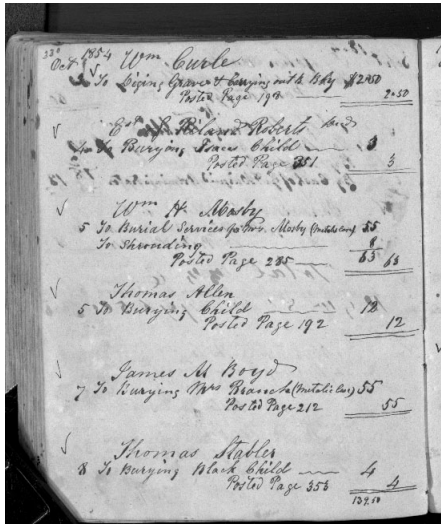 Oct 1854 Wm Curle
3 To Diging Grave & Carrying out B. Body $2.50
Posted Page 198 2.50
Roberts
4 To Burying Isaac Child 3
Posted Page 351 3
Wm H. Mosby
5 To Burial Services for Mrs. Mosby (Metalic Case) 55
To Shrouding 8
Posted Page 285 63 63
Thomas Allen
5 To Burying Child 12
Posted Page 192 12
James M Boyd
7 To Burying Mrs Branch (Metalic Case) 55
Posted Page 212 55
Thomas Stabler
8 To Burying Black Child 4
Posted Page 353 4
139.50